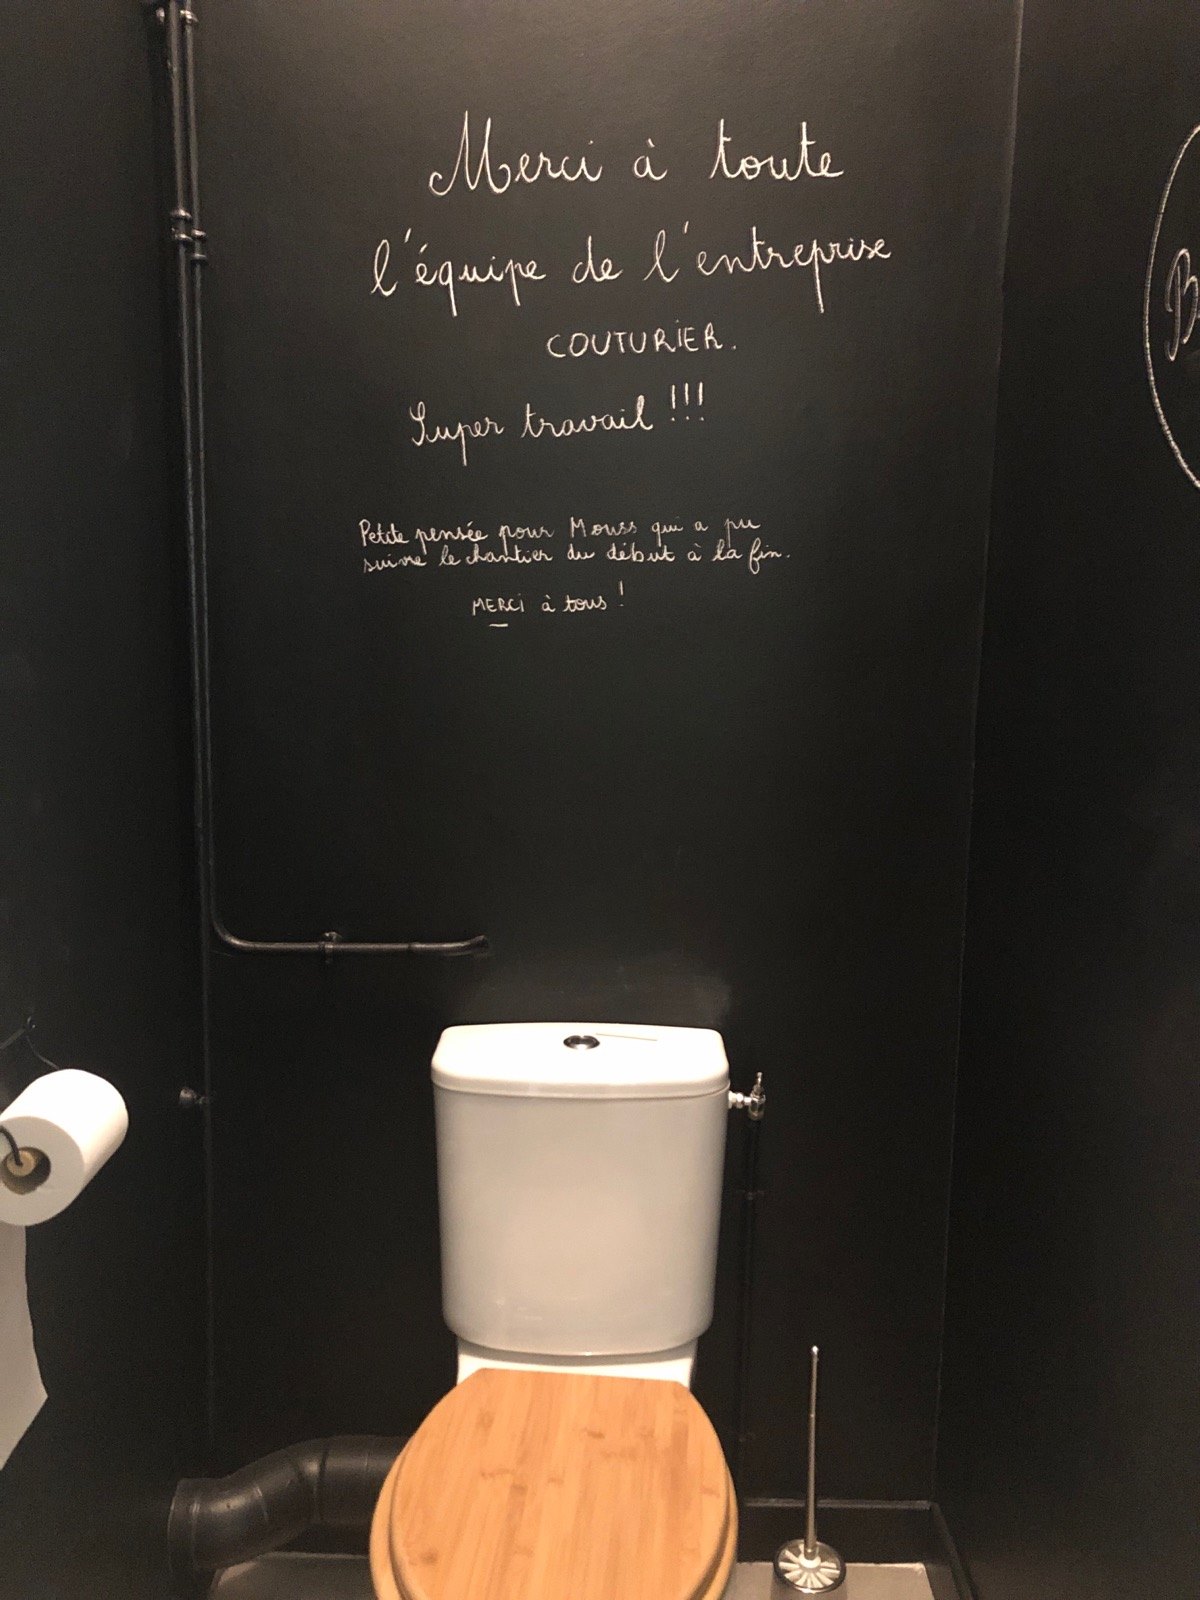 Merci à toute
l'équipe de l'entreprise
COUTURIER.
Super travail !!!
Petite pensée pour Mouss qui a pu
suivre le chantier du début à la fin.
MERCI à tous !